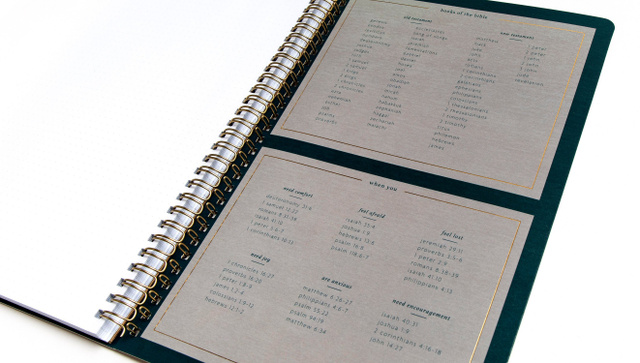 books of the bible
old testament
genesis
joshua
judges
ruth
1 samuel
2 samuel
1 kings
2 kings
1 chronicles
2 chronicles
ezra
nehemiah
esther
job
psalms
proverbs
song of songs
isaiah
jeremiah
lamentations
daniel
hosea
joel
amos
obadiah
jonah
micah
nahum
habakkuk
zephaniah
haggai
zechariah
malachi
new testament
matthew
mark
luke
john
acts
romans
1 corinthians
2 corinthians
galatians
ephesians
philippians
colossians
1 thessalonians
2 thessalonians
1 timothy
2 timothy
titus
philemon
hebrews
james
1 peter
2 peter
1 john
2 john
3 john
jude
revelation
when you
need comfort
deuteronomy 31:6
1 samuel 12:22
isaiah 41:10
1 peter 5:6-7
1 corinthians 10:13
feel afraid
isaiah 35:4
joshua 1:9
hebrews 13:6
psalm 16:8
psalm 118:6-7
feel lost
jeremiah 29:11
proverbs 3:5-6
1 peter 2:9
romans 8:38-39
isaiah 41:10
philippians 4:13
need joy
1 chronicles 16:27
proverbs 10:28
1 peter 1:8-9
james 1:2-4
colossians 1:9-12
hebrews 12:1-2
are anxious
matthew 6:26-27
philippians 4:6-7
psalm 55:22
psalm 94:19
matthew 6:34
need encouragement
isaiah 40:31
joshua 1:9
2 corinthians 4:16-18
john 14:27